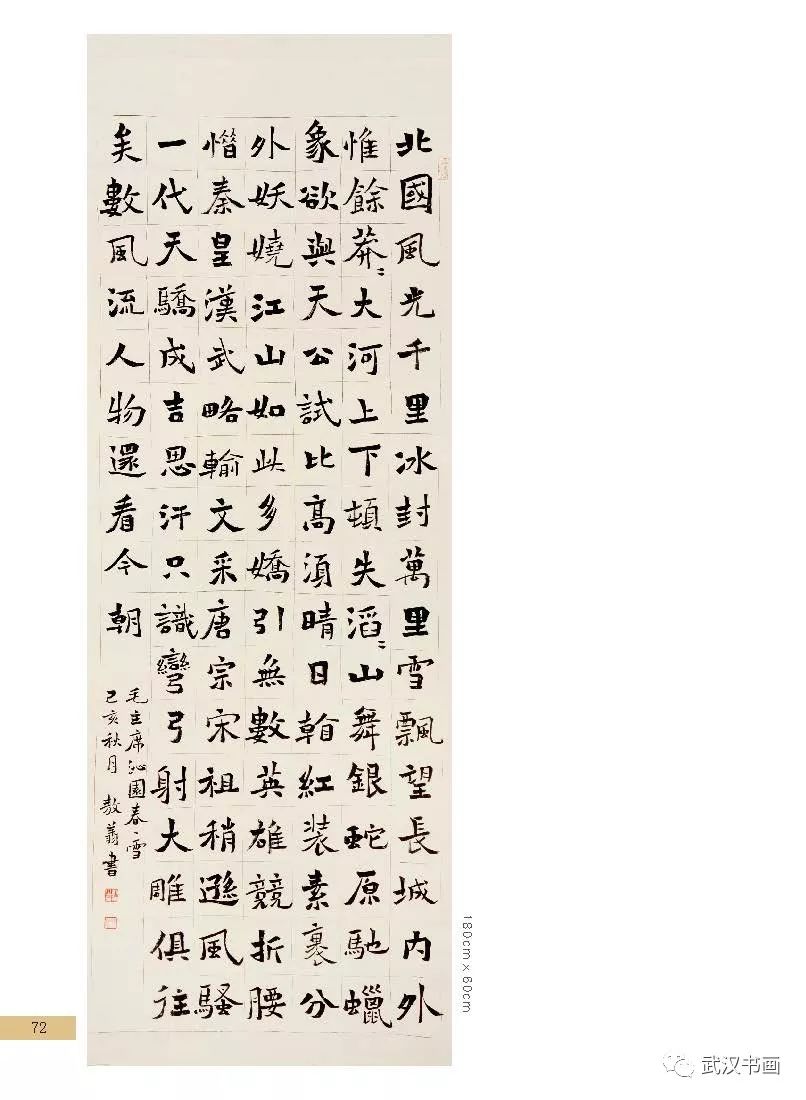 北國風光千里冰封萬里雪飄望長城内外
惟餘莽〻大河上下頓失滔〻山舞銀蛇原馳蠟
象欲與天公試比高須晴日翰紅装素裹分
外妖嬈江山如此多嬌引無數英雄競折腰
惜秦皇漢武略輸文采唐宗宋祖稍遜風騷
一代天驕成吉思汗只識彎弓射大雕俱往
矣數風流人物還看今朝
毛主席沁園春、雪
己亥秋月 書
180cm×60cm
72
武汉书画